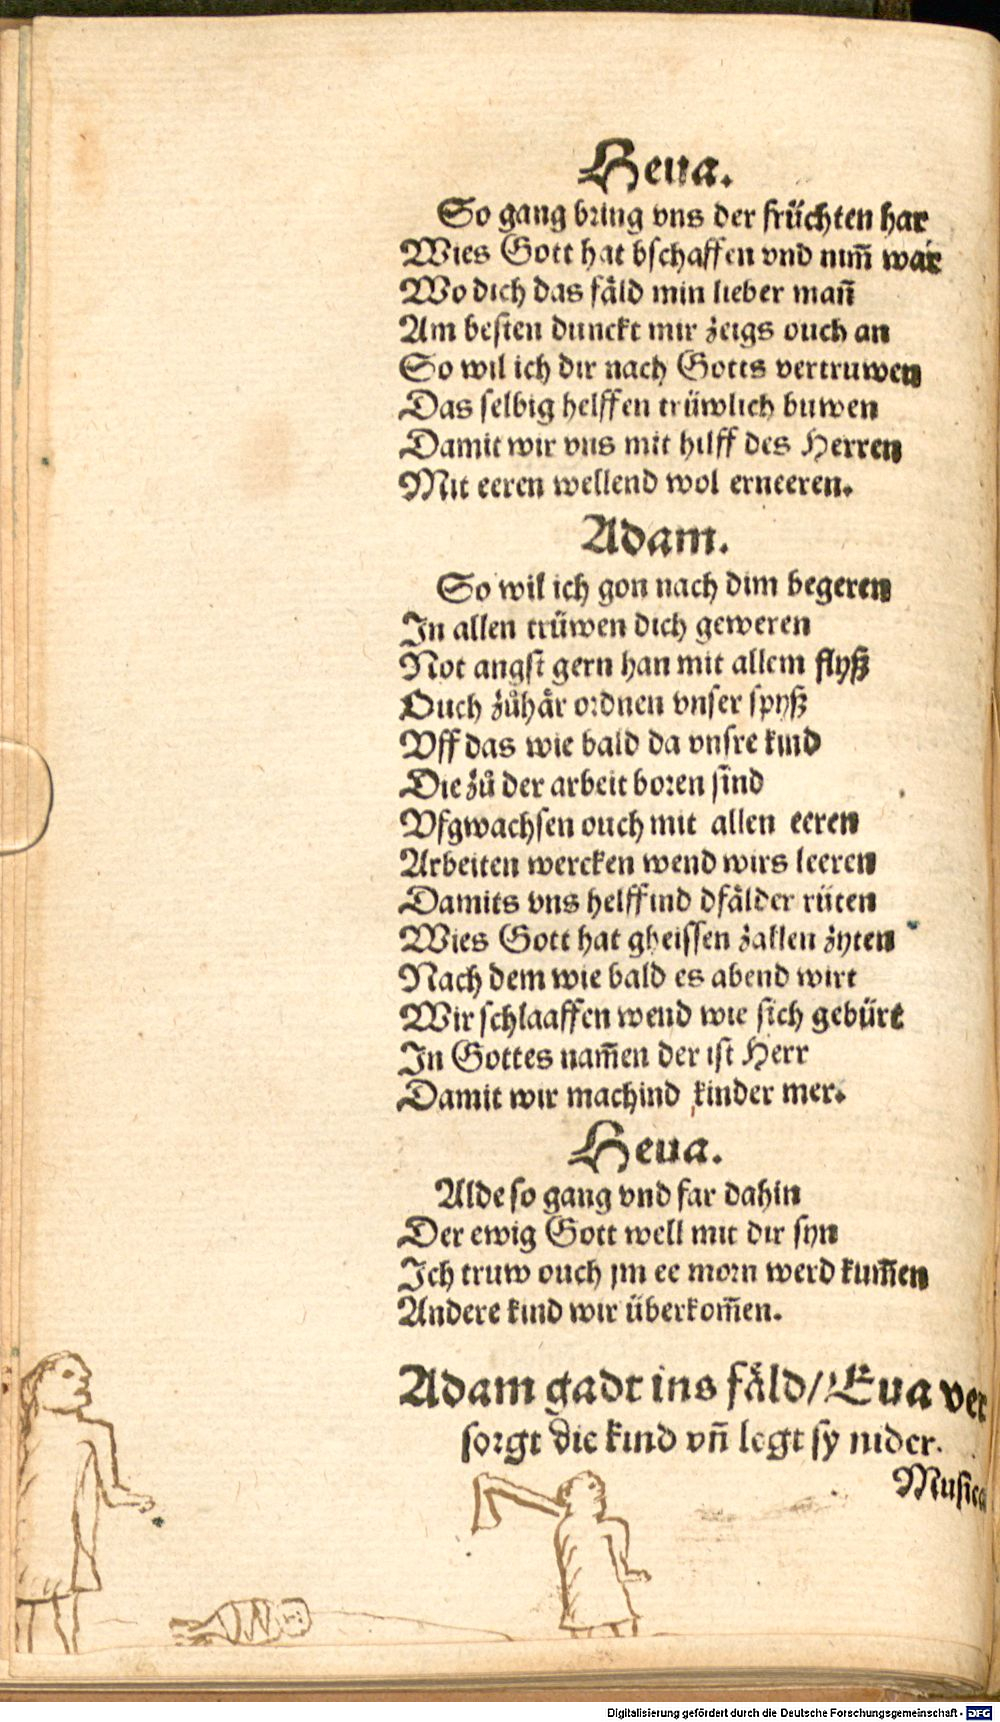 Heua.
So gang bring vns der früchten har
Wies Gott hat bschaffen vnd nim̃ war
Wo dich das fäld min lieber man̄
Am besten dunckt mir zeigs ouch an
So wil ich dir nach Gotts vertruwen
Das selbig helffen trüwlich buwen
Damit wir vns mit hilff des Herren
Mit eeren wellend wol erneeren.
Adam.
So wil ich gon nach dim begeren
In allen trüwen dich geweren
Not angst gern han mit allem flyß
Ouch zůhär ordnen vnser spyß
Vff das wie bald da vnsre kind
Die zů der arbeit boren sind
Vfgwachsen ouch mit allen eeren
Arbeiten wercken wend wirs leeren
Damits vns helffind dfälder rüten
Wies Gott hat gheissen zallen zyten
Nach dem wie bald es abend wirt
Wir schlaaffen wend wie sich gebürt
In Gottes nam̄en der ist Herr
Damit wir machind kinder mer.
Heua.
Alde so gang vnd far dahin
Der ewig Gott well mit dir syn
Ich truw ouch jm ee morn werd kum̄en
Andere kind wir überkom̄en.
Adam gadt ins fäld/ Eua ver
sorgt die kind vn̄ legt sy nider.
Musica
Digitalisierung gefördert durch die Deutsche Forschungsgemeinschaft - DFG